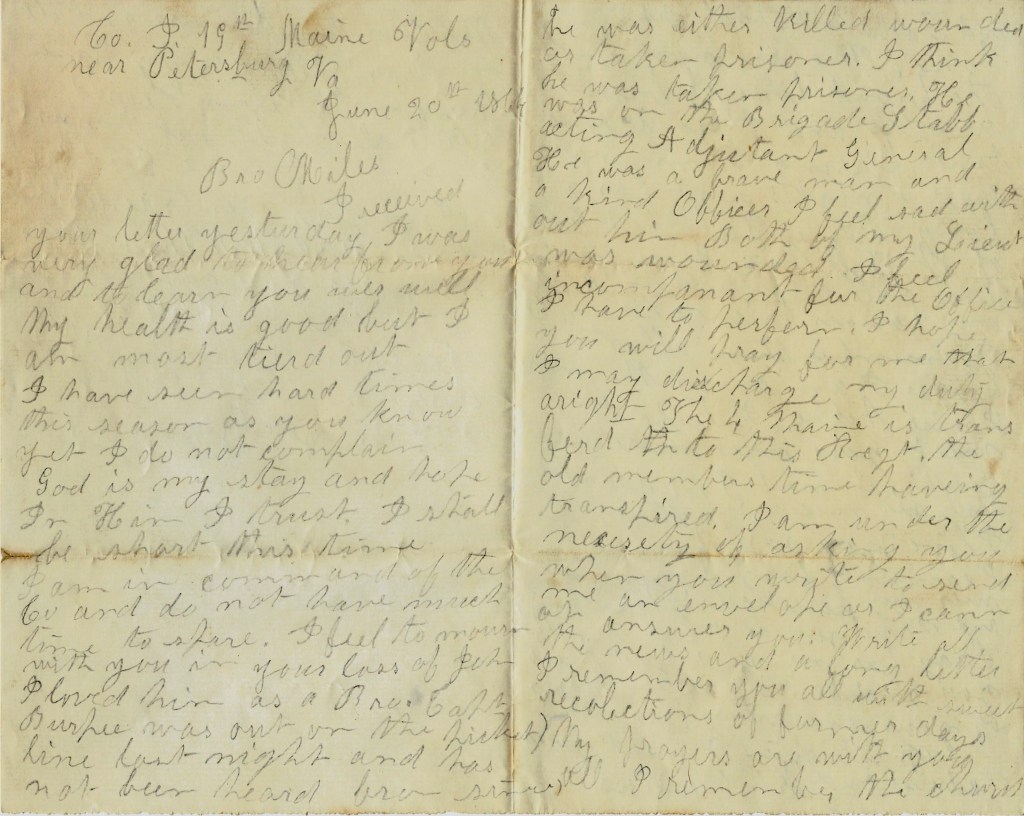 Co. I 19th Maine Vols
near Petersburg Va
June 20th 1864
Bro Miles
I received
your letter yesterday, I was
very glad to hear from you
and to learn you was well
My health is good but I
am most tierd out
I have seen hard times
this season as you know
yet I do not complain
God is my stay and hope
In Him I trust. I shall
be short this time
I am in command of the
Co and do not have much
time to spare. I feel to mourn
with you in your loss of John
I loved him as a Bro. Capt
Burpee was out on the picket
line last night and has
not been heard from since
he was either killed wounded
or taken prisoner. I think
he was taken prisoner, He
was on the Brigade Staff
acting Adjutant General
He was a brave man and
a kind Officer I feel sad with
out him Both of my Lieut
was wounded. I feel
incompanant for the Office
I have to perform. I hope
you will pray for me that
I may discharge my duty
aright The 4 Maine is trans
ferd to this Regt. the
old members time haveing
transpired. I am under the
necisety of asking you
when you write to send
me an envelope as I cann
ot answer you: Write all
the news and a long letter
I remember you all with sweet
recolections of former days
My prayers are with you
all I remember the church